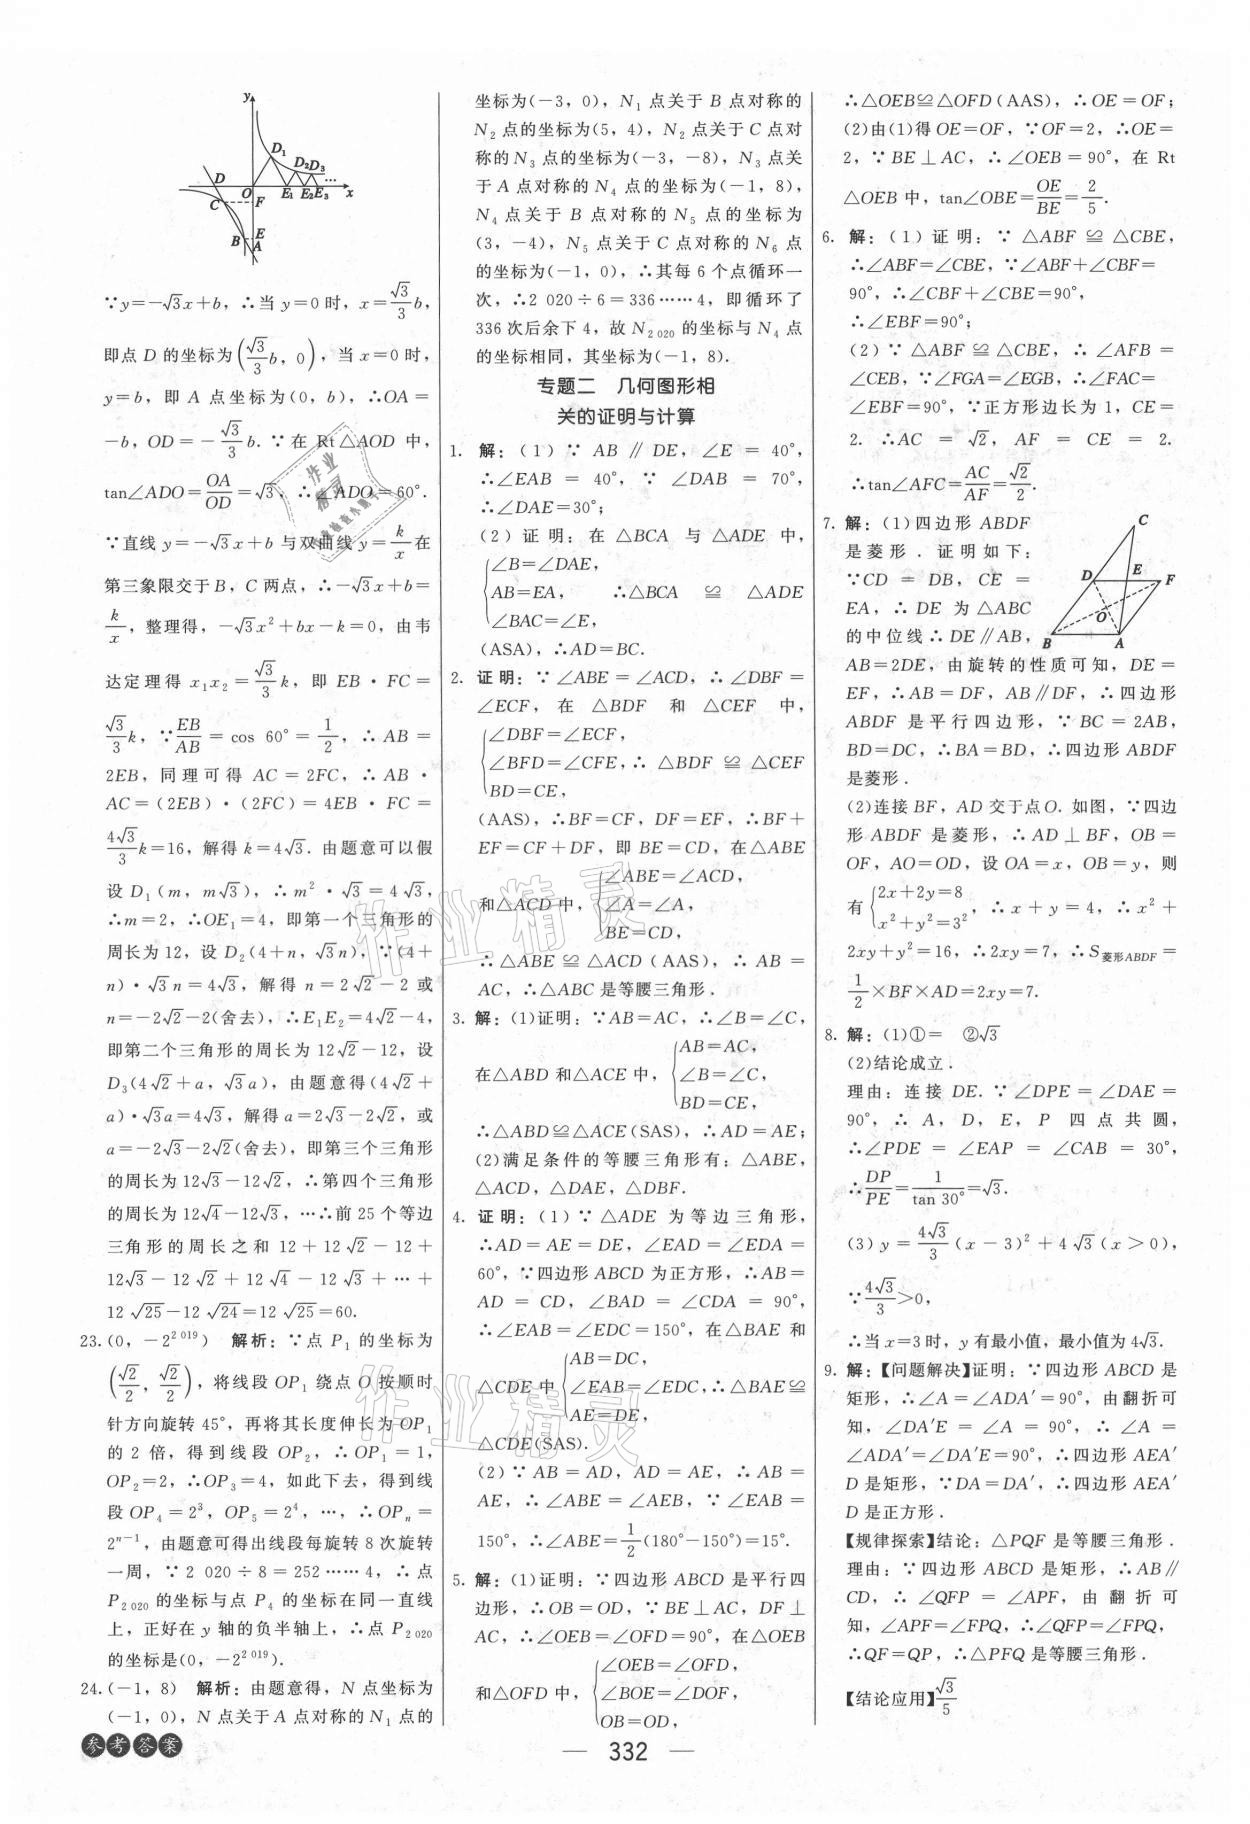 y
D₁
D₂ D₃
D O E₁ E₂ E₃ … x
C F
B E
A
∵y=−√3x+b,∴当y=0时,x=√3/3 b,
即点D的坐标为(√3/3 b,0),当x=0时,
y=b,即A点坐标为(0,b),∴OA=
−b,OD=−√3/3 b.∵在Rt△AOD中,
tan∠ADO=OA/OD=√3,∴∠ADO=60°.
∵直线y=−√3x+b与双曲线y=k/x在
第三象限交于B,C两点,∴−√3x+b=
k/x,整理得,−√3x²+bx−k=0,由韦
达定理得x₁x₂=√3/3 k,即EB·FC=
√3/3 k,∵EB/AB=cos 60°=1/2,∴AB=
2EB,同理可得AC=2FC,∴AB·
AC=(2EB)·(2FC)=4EB·FC=
4√3/3 k=16,解得k=4√3.由题意可以假
设D₁(m,m√3),∴m²·√3=4√3,
∴m=2,∴OE₁=4,即第一个三角形的
周长为12,设D₂(4+n,√3n),∵(4+
n)·√3n=4√3,解得n=2√2−2或
n=−2√2−2(舍去),∴E₁E₂=4√2−4,
即第二个三角形的周长为12√2−12,设
D₃(4√2+a,√3a),由题意得(4√2+
a)·√3a=4√3,解得a=2√3−2√2,或
a=−2√3−2√2(舍去),即第三个三角形
的周长为12√3−12√2,∴第四个三角形
的周长为12√4−12√3,…∴前25个等边
三角形的周长之和12+12√2−12+
12√3−12√2+12√4−12√3+…+
12√25−12√24=12√25=60.
23.(0,−2²⁰¹⁹) 解析:∵点P₁的坐标为
(√2/2,√2/2),将线段OP₁绕点O按顺时
针方向旋转45°,再将其长度伸长为OP₁
的2倍,得到线段OP₂,∴OP₁=1,
OP₂=2,∴OP₃=4,如此下去,得到线
段OP₄=2³,OP₅=2⁴,…,∴OPₙ=
2ⁿ⁻¹,由题意可得出线段每旋转8次旋转
一周,∵2 020÷8=252……4,∴点
P₂₀₂₀的坐标与点P₄的坐标在同一直线
上,正好在y轴的负半轴上,∴点P₂₀₂₀
的坐标是(0,−2²⁰¹⁹).
24.(−1,8) 解析:由题意得,N点坐标为
(−1,0),N点关于A点对称的N₁点的
坐标为(−3,0),N₁点关于B点对称的
N₂点的坐标为(5,4),N₂点关于C点对
称的N₃点的坐标为(−3,−8),N₃点关
于A点对称的N₄点的坐标为(−1,8),
N₄点关于B点对称的N₅点的坐标为
(3,−4),N₅点关于C点对称的N₆点
的坐标为(−1,0),∴其每6个点循环一
次,∴2 020÷6=336……4,即循环了
336次后余下4,故N₂₀₂₀的坐标与N₄点
的坐标相同,其坐标为(−1,8).
专题二 几何图形相
关的证明与计算
1. 解:(1)∵AB∥DE,∠E=40°,
∴∠EAB=40°,∵∠DAB=70°,
∴∠DAE=30°;
(2)证明:在△BCA与△ADE中,
∠B=∠DAE,
AB=EA, ∴△BCA≌△ADE
∠BAC=∠E,
(ASA),∴AD=BC.
2. 证明:∵∠ABE=∠ACD,∴∠DBF=
∠ECF,在△BDF和△CEF中,
∠DBF=∠ECF,
∠BFD=∠CFE,∴△BDF≌△CEF
BD=CE,
(AAS),∴BF=CF,DF=EF,∴BF+
EF=CF+DF,即BE=CD,在△ABE
∠ABE=∠ACD,
和△ACD中, ∠A=∠A,
BE=CD,
∴△ABE≌△ACD(AAS),∴AB=
AC,∴△ABC是等腰三角形.
3. 解:(1)证明:∵AB=AC,∴∠B=∠C,
AB=AC,
在△ABD和△ACE中, ∠B=∠C,
BD=CE,
∴△ABD≌△ACE(SAS),∴AD=AE;
(2)满足条件的等腰三角形有:△ABE,
△ACD,△DAE,△DBF.
4. 证明:(1)∵△ADE为等边三角形,
∴AD=AE=DE,∠EAD=∠EDA=
60°,∵四边形ABCD为正方形,∴AB=
AD=CD,∠BAD=∠CDA=90°,
∴∠EAB=∠EDC=150°,在△BAE和
AB=DC,
△CDE中 ∠EAB=∠EDC,∴△BAE≌
AE=DE,
△CDE(SAS).
(2)∵AB=AD,AD=AE,∴AB=
AE,∴∠ABE=∠AEB,∵∠EAB=
150°,∴∠ABE=1/2(180°−150°)=15°.
5. 解:(1)证明:∵四边形ABCD是平行四
边形,∴OB=OD,∵BE⊥AC,DF⊥
AC,∴∠OEB=∠OFD=90°,在△OEB
∠OEB=∠OFD,
和△OFD中, ∠BOE=∠DOF,
OB=OD,
∴△OEB≌△OFD(AAS),∴OE=OF;
(2)由(1)得OE=OF,∵OF=2,∴OE=
2,∵BE⊥AC,∴∠OEB=90°,在Rt
△OEB中,tan∠OBE=OE/BE=2/5.
6. 解:(1)证明:∵△ABF≌△CBE,
∴∠ABF=∠CBE,∵∠ABF+∠CBF=
90°,∴∠CBF+∠CBE=90°,
∴∠EBF=90°;
(2)∵△ABF≌△CBE,∴∠AFB=
∠CEB,∵∠FGA=∠EGB,∴∠FAC=
∠EBF=90°,∵正方形边长为1,CE=
2.∴AC=√2,AF=CE=2.
∴tan∠AFC=AC/AF=√2/2.
7. 解:(1)四边形ABDF
是菱形.证明如下:
∵CD=DB,CE=
EA,∴DE为△ABC
的中位线∴DE∥AB,
C
D E F
O
B A
AB=2DE,由旋转的性质可知,DE=
EF,∴AB=DF,AB∥DF,∴四边形
ABDF是平行四边形,∵BC=2AB,
BD=DC,∴BA=BD,∴四边形ABDF
是菱形.
(2)连接BF,AD交于点O.如图,∵四边
形ABDF是菱形,∴AD⊥BF,OB=
OF,AO=OD,设OA=x,OB=y,则
有{2x+2y=8
x²+y²=3²,∴x+y=4,∴x²+
2xy+y²=16,∴2xy=7,∴S菱形ABDF=
1/2×BF×AD=2xy=7.
8. 解:(1)①= ②√3
(2)结论成立.
理由:连接DE.∵∠DPE=∠DAE=
90°,∴A,D,E,P四点共圆,
∴∠PDE=∠EAP=∠CAB=30°,
∴DP/PE=1/tan 30°=√3.
(3)y=4√3/3(x−3)²+4√3(x>0),
∵4√3/3>0,
∴当x=3时,y有最小值,最小值为4√3.
9. 解:【问题解决】证明:∵四边形ABCD是
矩形,∴∠A=∠ADA′=90°,由翻折可
知,∠DA′E=∠A=90°,∴∠A=
∠ADA′=∠DA′E=90°,∴四边形AEA′
D是矩形,∵DA=DA′,∴四边形AEA′
D是正方形.
【规律探索】结论:△PQF是等腰三角形.
理由:∵四边形ABCD是矩形,∴AB∥
CD,∴∠QFP=∠APF,由翻折可
知,∠APF=∠FPQ,∴∠QFP=∠FPQ,
∴QF=QP,∴△PFQ是等腰三角形.
【结论应用】√3/5
参考答案
332
作业精灵
作业精灵